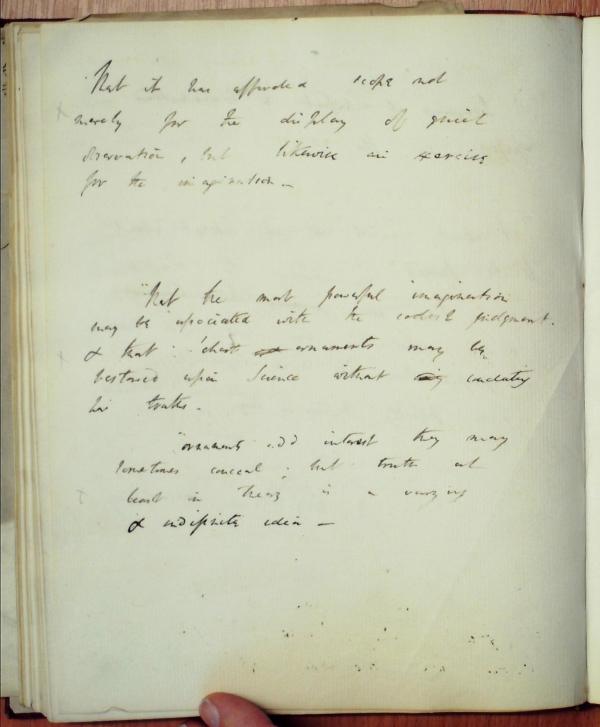 That it has afforded scope not
merely for the display of quiet
observation, but likewise an exercise
for the imagination. —
"That the most powerful imagination
may be associated with the coolest judgment.
& that chast ornaments may be
bestowed upon Science without
her truths.
"ornaments add interest they may
sometimes conceal; but truth at
least in theory is a varying
& indefinite idea —